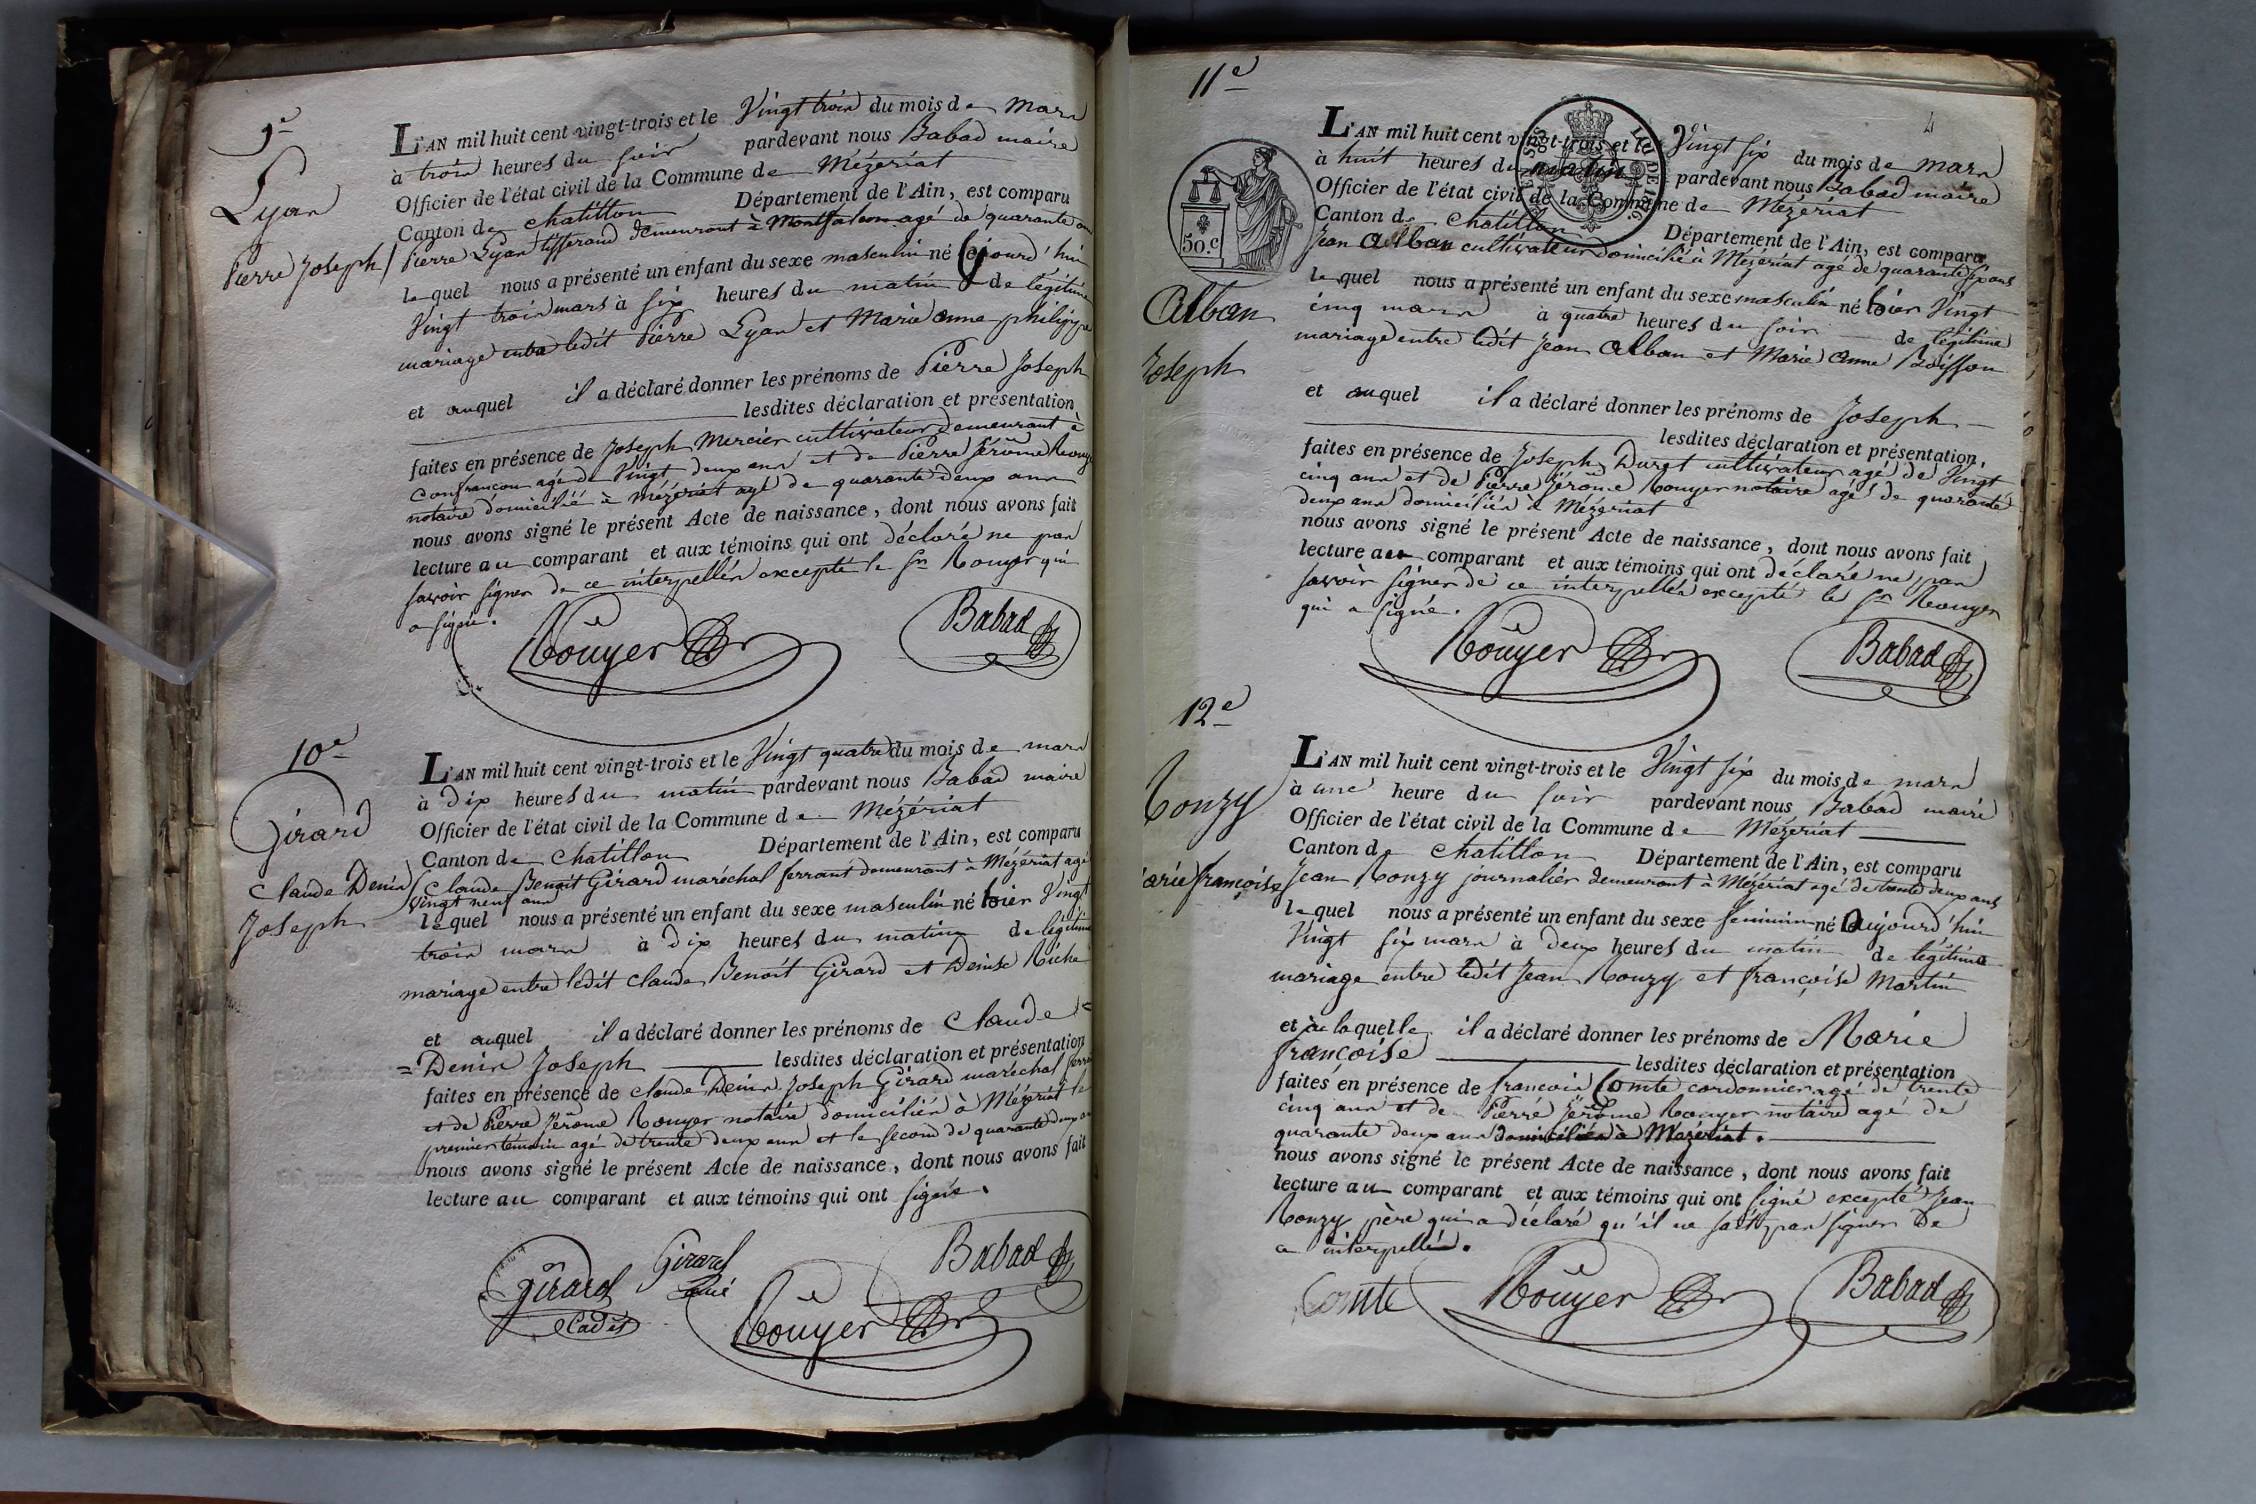 9e
Lyan
Pierre Joseph
L'AN mil huit cent vingt-trois et le Vingt trois du mois de mars
à trois heures du soir pardevant nous Babad maire
Officier de l'état civil de la Commune de Mézériat
Canton de chatillon Département de l'Ain, est comparu
Pierre Lyan tisserand demeurant à Montfalcon agé de quarante ans
lequel nous a présenté un enfant du sexe masculin né cejourd'hui
Vingt trois mars à six heures du matin de légitime
mariage entre ledit Pierre Lyan et Marie anne philippe
et auquel il a déclaré donner les prénoms de Pierre Joseph
lesdites déclaration et présentation
faites en présence de Joseph Mercier cultivateur demeurant à
Confrançon agé de Vingt deux ans et de Pierre Jérôme Rouyer
notaire domicilié à Mézériat agé de quarante deux ans
nous avons signé le présent Acte de naissance, dont nous avons fait
lecture au comparant et aux témoins qui ont déclaré ne pas
savoir signer de ce interpellés excepté le sr Rouyer qui
a signé.
Rouyer Babad
10e
Girard
Claude Denis
Joseph
L'AN mil huit cent vingt-trois et le Vingt quatre du mois de mars
à Dix heures du matin pardevant nous Babad maire
Officier de l'état civil de la Commune de Mézériat
Canton de chatillon Département de l'Ain, est comparu
Claude Benoit Girard maréchal ferrant demeurant à Mézériat agé
Vingt neuf ans
lequel nous a présenté un enfant du sexe masculin né hier Vingt
trois mars à Dix heures du matin de légitime
mariage entre ledit Claude Benoit Girard et Denise Riche
et auquel il a déclaré donner les prénoms de Claude =
= Denis Joseph lesdites déclaration et présentation
faites en présence de Claude Denis Joseph Girard maréchal ferra
et de Pierre Jérôme Rouyer notaire domiciliés à Mézériat le
premier témoin agé de trente deux ans et le second de quarante deux ans
nous avons signé le présent Acte de naissance, dont nous avons fait
lecture au comparant et aux témoins qui ont signé.
Girard Cadet Girard Rouyer Babad
11e
4
50.c
Alban
Joseph
L'AN mil huit cent vingt-trois et le Vingt six du mois de mars
à huit heures du matin pardevant nous Babad maire
Officier de l'état civil de la Commune de Mézériat
Canton de Chatillon Département de l'Ain, est comparu
Jean Alban cultivateur domicilié à Mézériat agé de quarante six ans
lequel nous a présenté un enfant du sexe masculin né hier Vingt
cinq mars à quatre heures du soir de légitime
mariage entre ledit Jean Alban et Marie Anne Boisson
et auquel il a déclaré donner les prénoms de Joseph
lesdites déclaration et présentation
faites en présence de Joseph Duret cultivateur agé de Vingt
cinq ans et de Pierre Jérôme Rouyer notaire agé de quarante
deux ans domiciliés à Mézériat
nous avons signé le présent Acte de naissance, dont nous avons fait
lecture au comparant et aux témoins qui ont déclaré ne pas
savoir signer de ce interpellés excepté le sr Rouyer
qui a signé.
Rouyer Babad
12e
Ronzy
arie françoise
L'AN mil huit cent vingt-trois et le Vingt six du mois de mars
à une heure du soir pardevant nous Babad maire
Officier de l'état civil de la Commune de Mézériat
Canton de Chatillon Département de l'Ain, est comparu
Jean Ronzy journalier demeurant à Mézériat agé de trente deux ans
lequel nous a présenté un enfant du sexe féminin né aujourd'hui
Vingt six mars à Deux heures du matin de légitime
mariage entre ledit Jean Ronzy et françoise Martin
et à laquelle il a déclaré donner les prénoms de Marie
françoise lesdites déclaration et présentation
faites en présence de françois Comte cordonnier agé de trente
cinq ans et de Pierre Jérôme Rouyer notaire agé de
quarante deux ans domiciliés à Mézériat.
nous avons signé le présent Acte de naissance, dont nous avons fait
lecture au comparant et aux témoins qui ont signé excepté Jean
Ronzy père qui a déclaré qu'il ne sait pas signer de
ce interpellé.
Comte Rouyer Babad